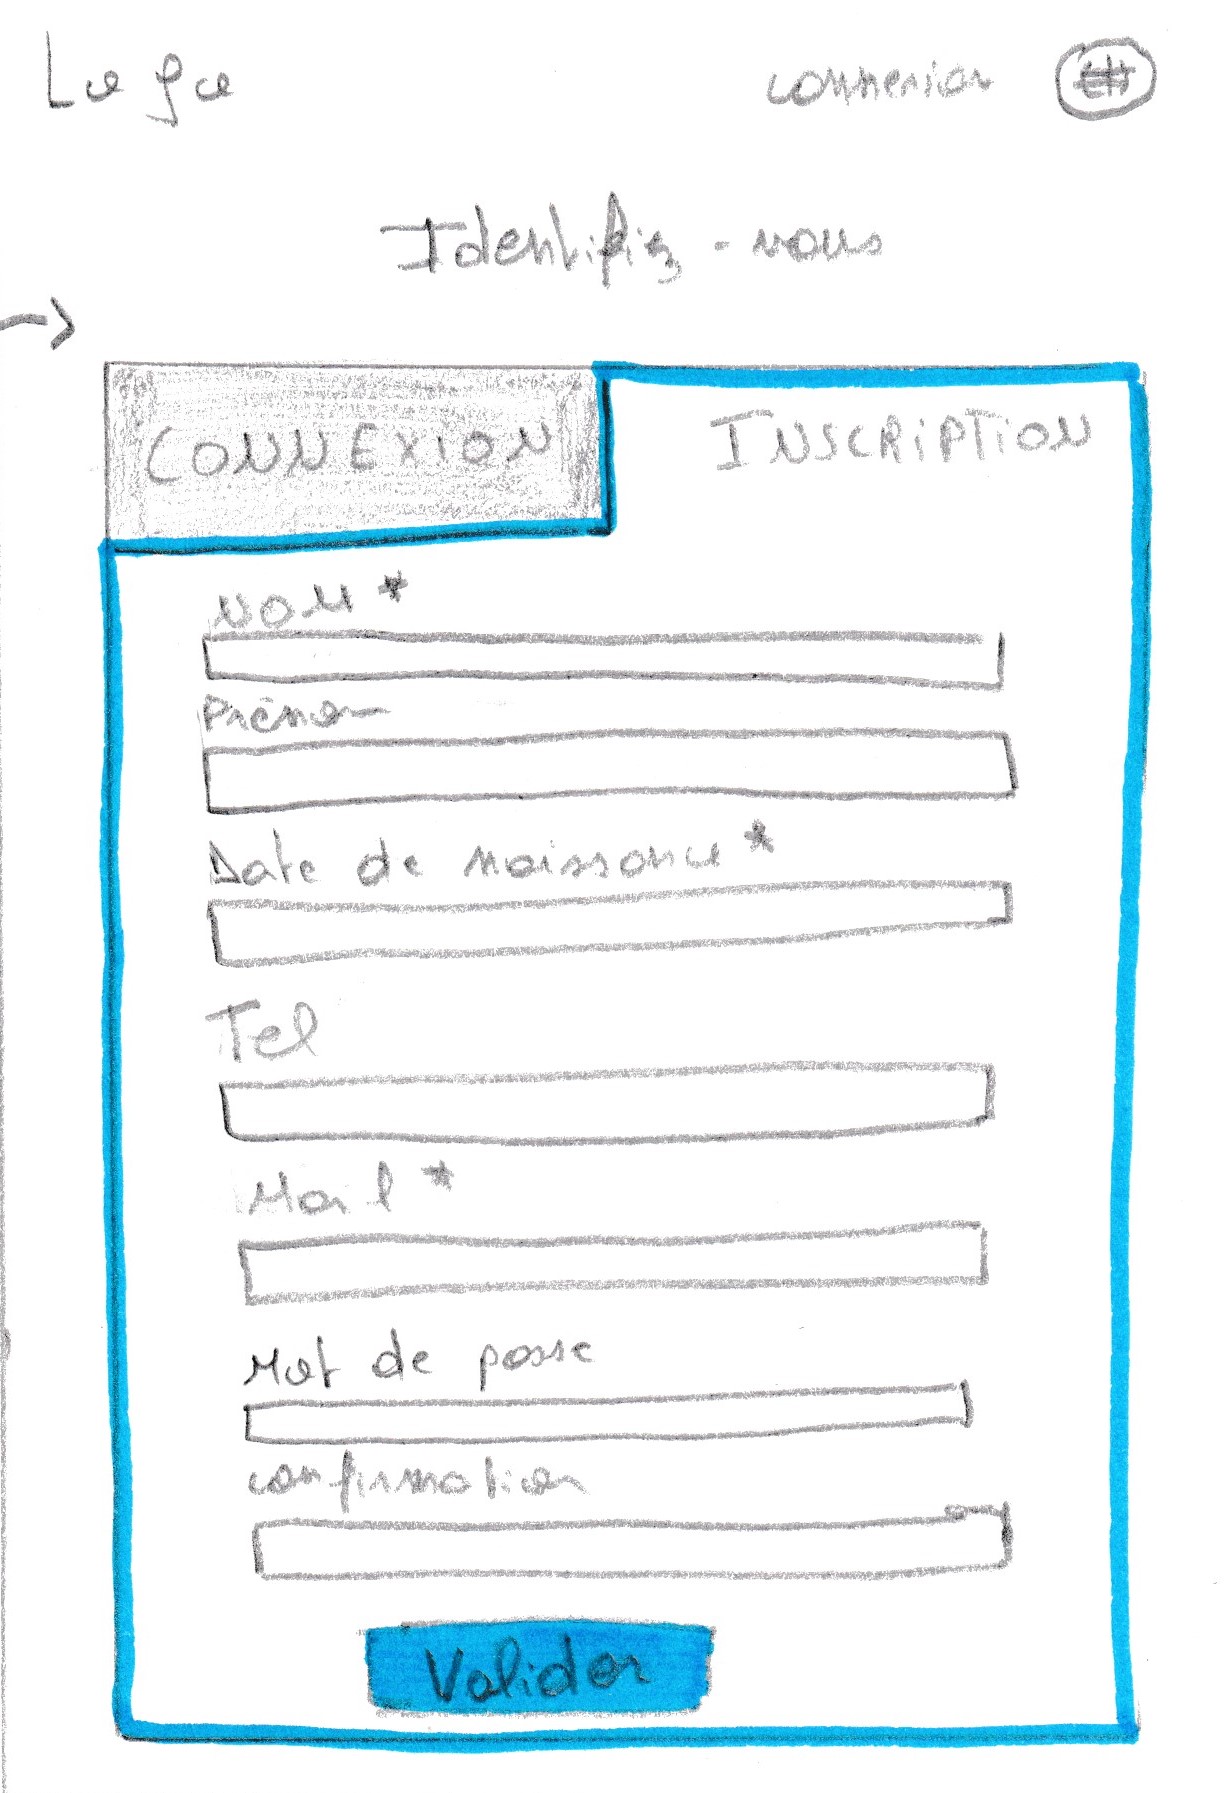 Logo
connexion
Identifiez-vous
CONNEXION
INSCRIPTION
NOM *
Prénom
Date de naissance *
Tel
Mail *
Mot de passe
confirmation
Valider